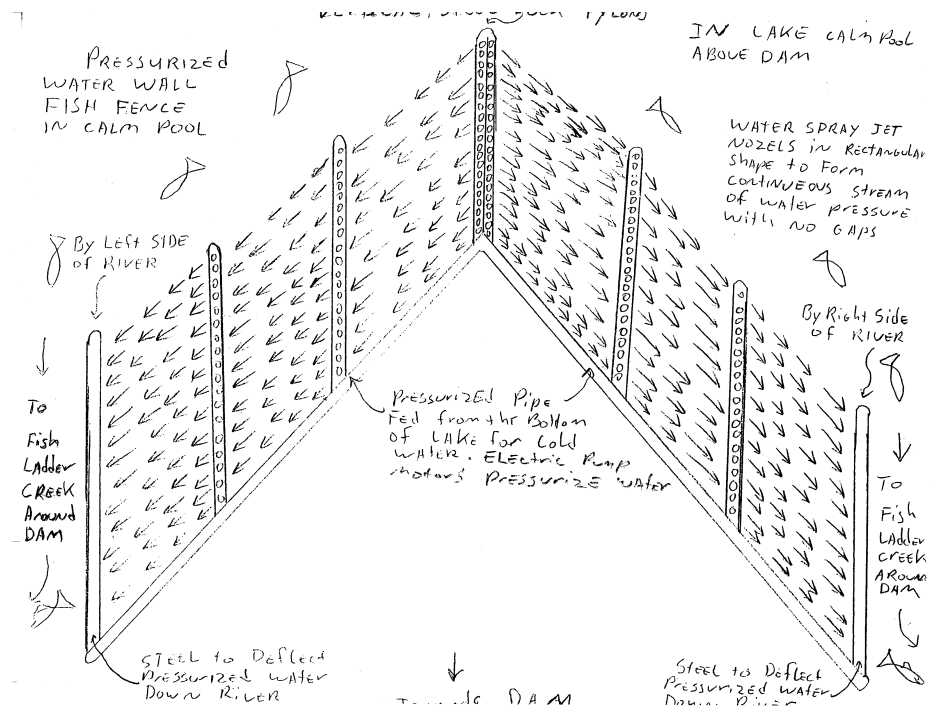 PYLONS
IN LAKE CALM POOL
ABOVE DAM
PRESSURIZED
WATER WALL
FISH FENCE
IN CALM POOL
WATER SPRAY JET
NOZELS IN RECTANGULAR
SHAPE to FORM
CONTINUOUS STREAM
OF WATER PRESSURE
WITH NO GAPS
By LEFT SIDE
OF RIVER
By Right Side
OF RIVER
To
Fish
LADDER
CREEK
Around
DAM
PRESSURIZED PIPE
FED from the Bottom
OF LAKE for Cold
WATER. ELECTRIC PUMP
motors PRESSURIZE WATER
To
Fish
LADDER
CREEK
AROUND
DAM
STEEL to DEFLECT
PRESSURIZED WATER
DOWN RIVER
Towards DAM
STEEL to DEFLECT
PRESSURIZED WATER
DOWN RIVER